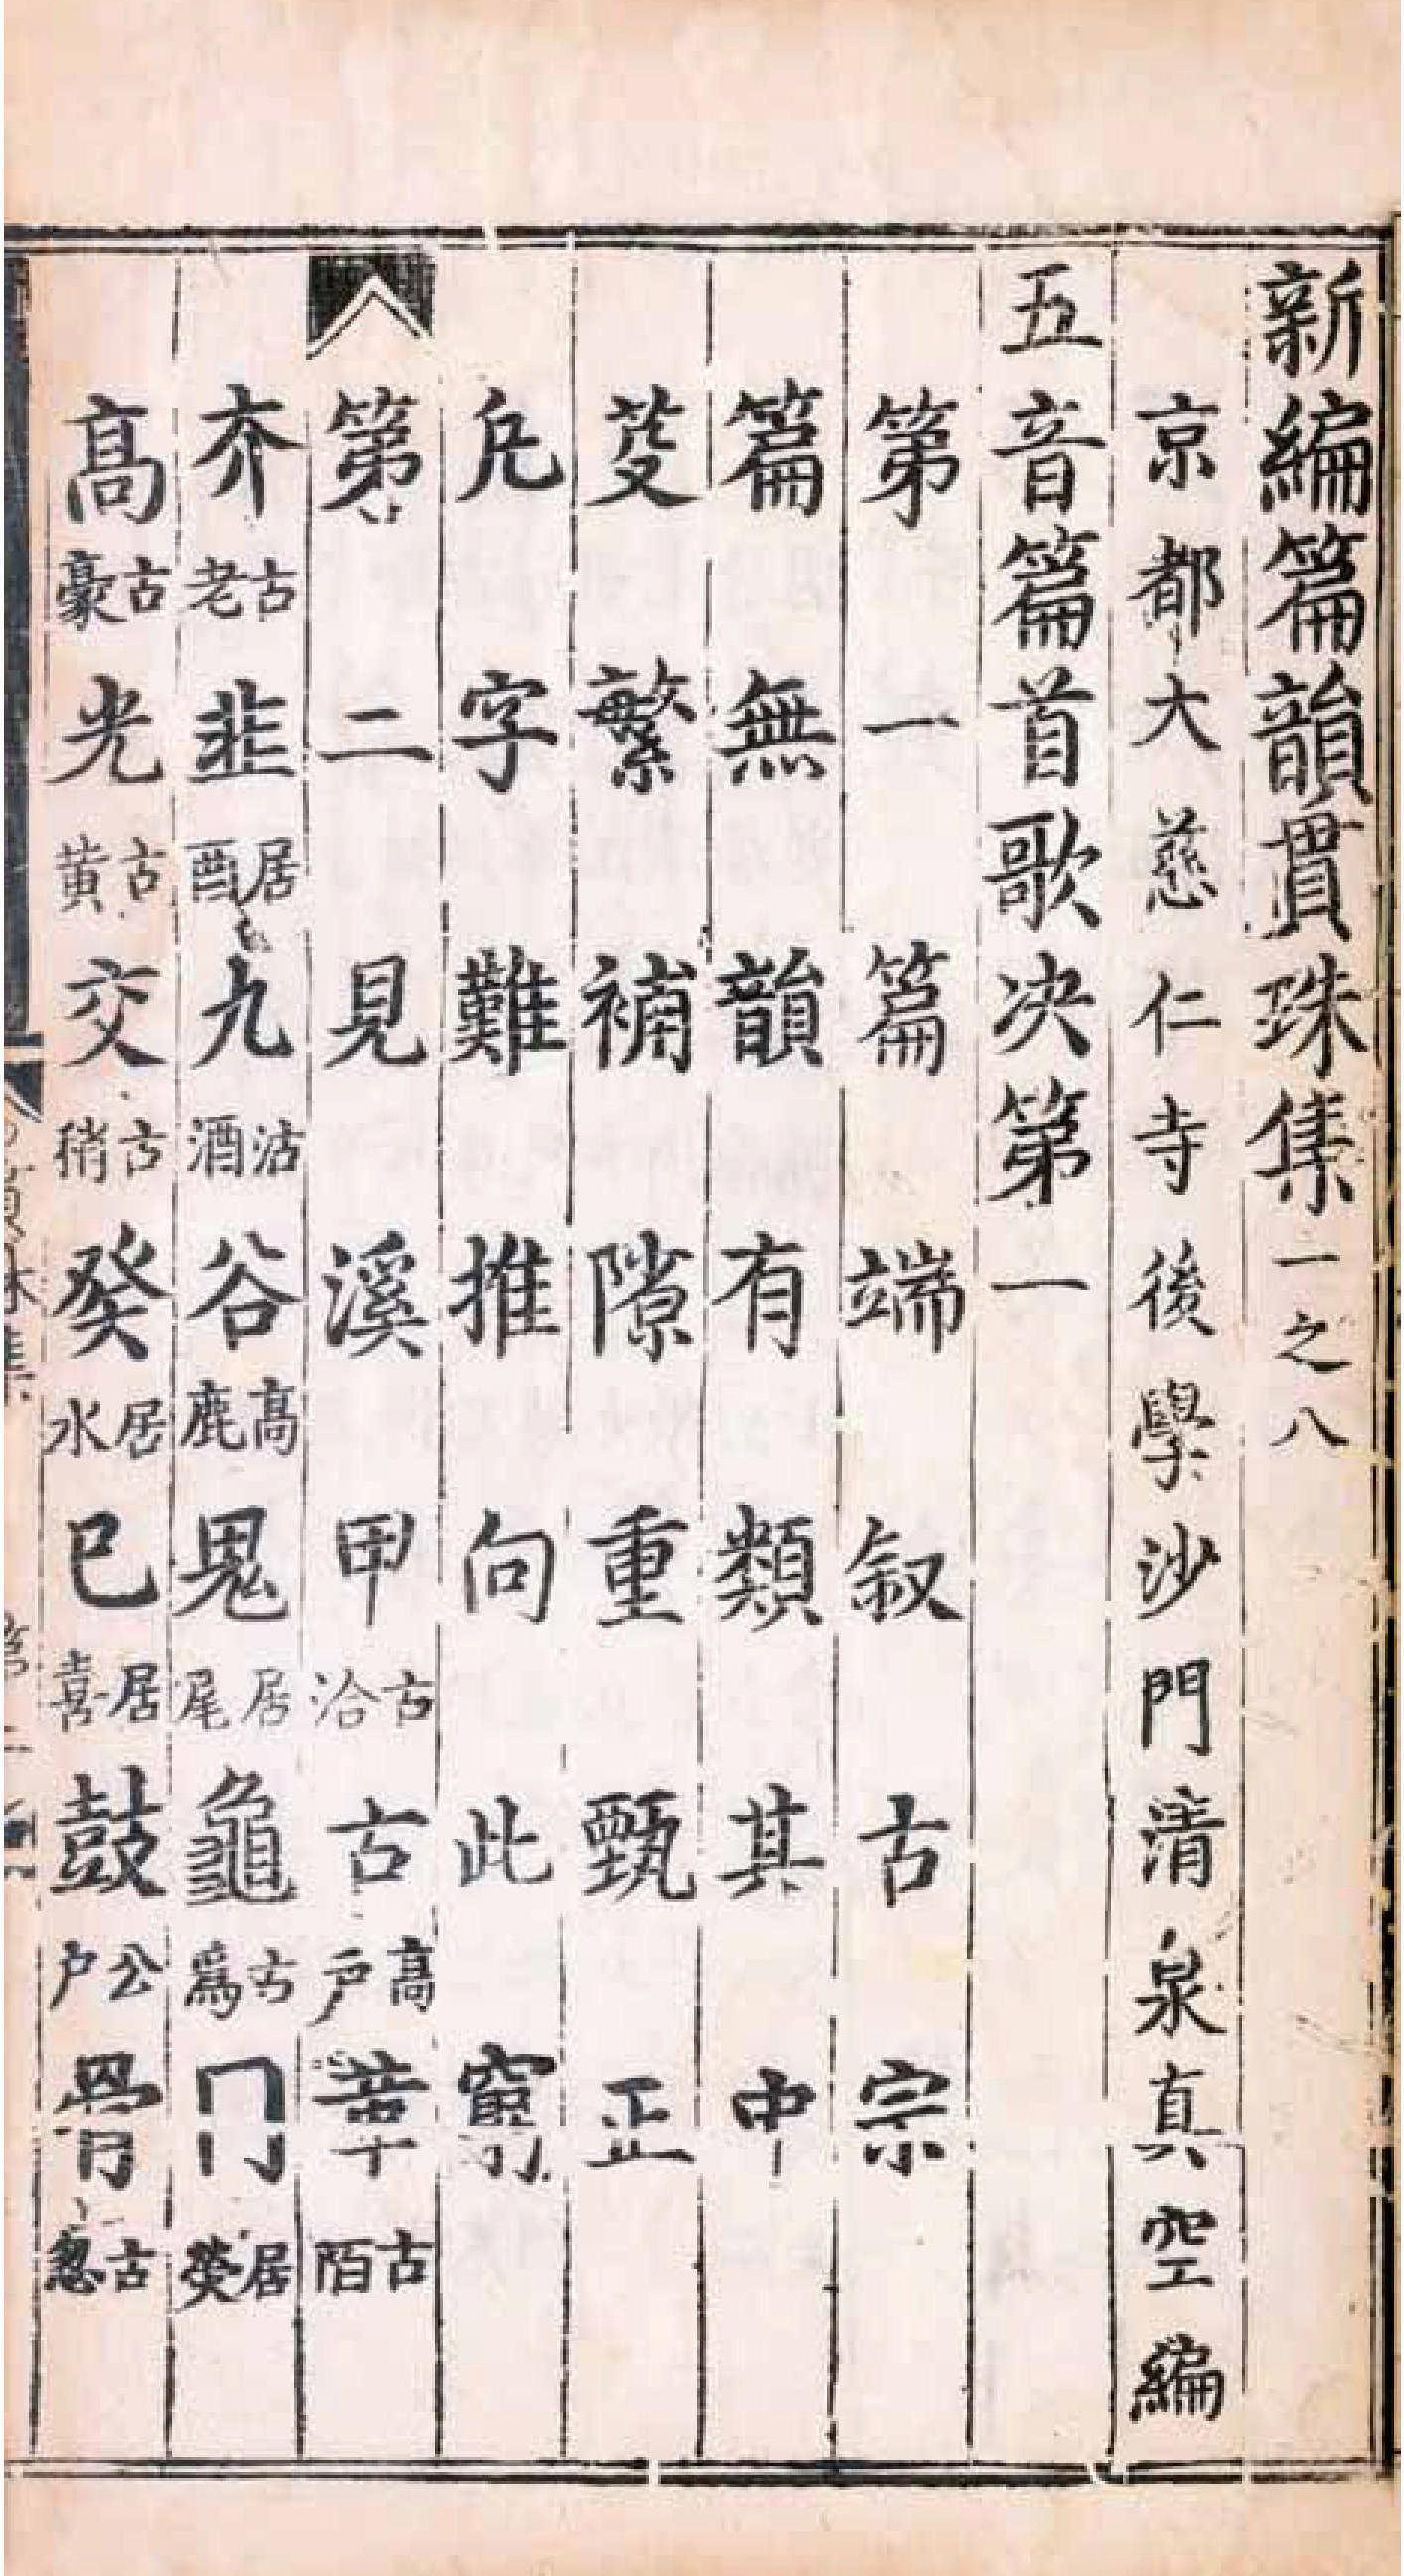 新編篇韻貫珠集一之八
京都大慈仁寺後學沙門清泉真空編
五音篇首歌決第一
第一篇端叙古宗
篇無韻有類其中
芟繁補隙重甄正
凡字難推向此窮
第二見溪甲古洽古高戶革古陌
夰古老韭居酉九沽酒谷高鹿鬼居尾龜古爲冂居熒
高古豪光古黄交古稍癸居水己居喜鼓公户骨古忽